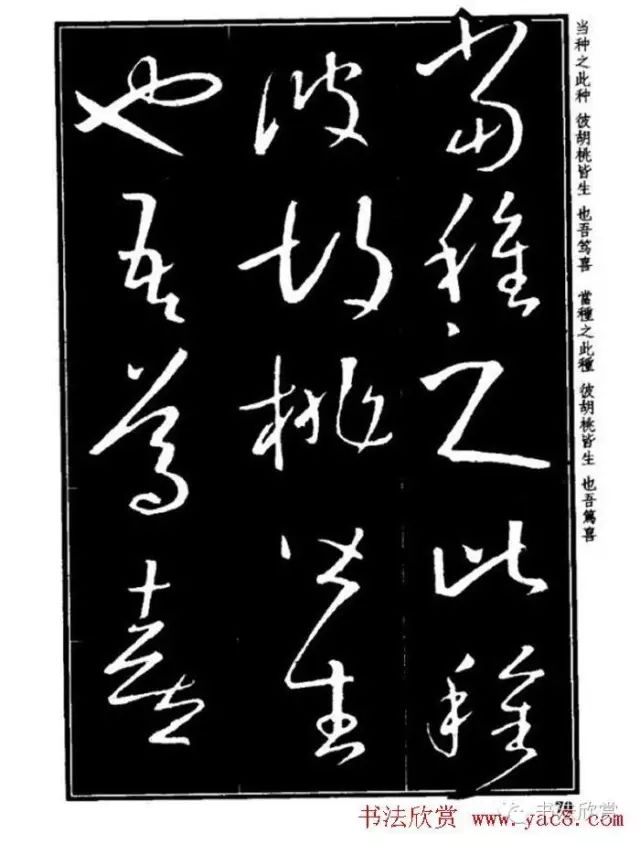 當種之此種
彼胡桃皆生
也吾篤喜
当种之此种 彼胡桃皆生 也吾笃喜 當種之此種 彼胡桃皆生 也吾篤喜
70
书法欣赏
书法欣赏 www.yac8.com